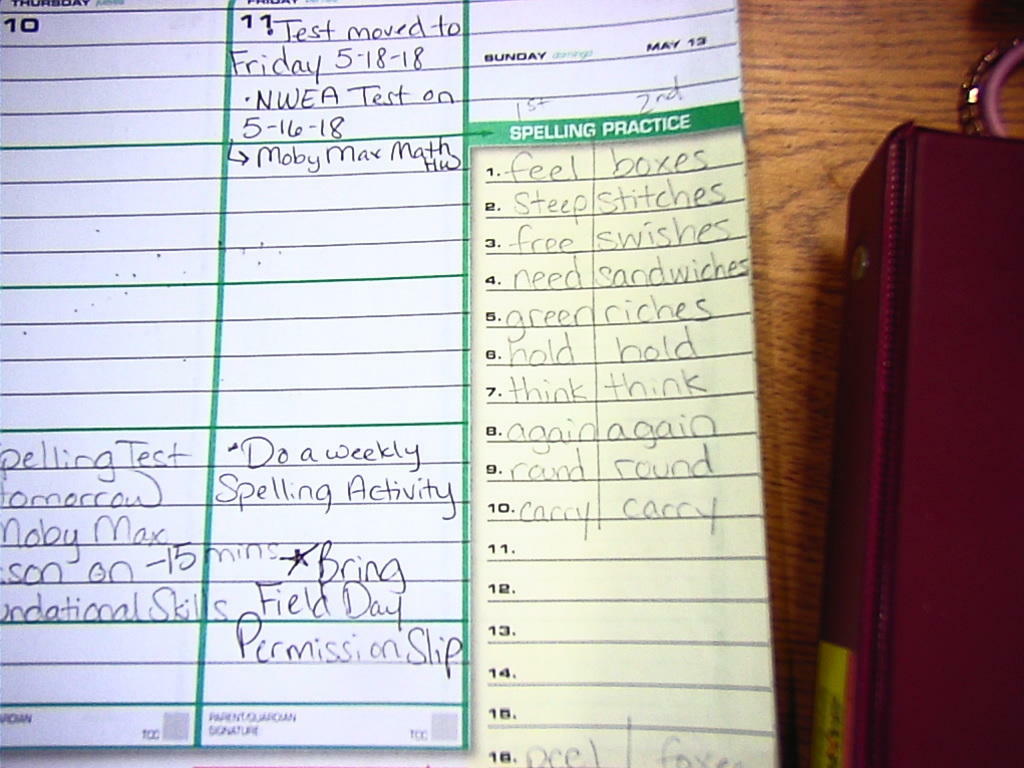 THURSDAY
10
pelling Test
tomorrow
Moby Max
son on -15 mins
ndational Skills
RDIAN
TCC
FRIDAY
11
Test moved to
Friday 5-18-18
·NWEA Test on
5-16-18
↳ Moby Max Math
HW
·Do a weekly
Spelling Activity
★Bring
Field Day
Permission Slip
PARENT/GUARDIAN
SIGNATURE
TCC
SUNDAY domingo MAY 13
1st 2nd
SPELLING PRACTICE
1. feel boxes
2. Steep stitches
3. free swishes
4. need sandwiches
5. green riches
6. hold hold
7. think think
8. again again
9. round round
10. carry carry
11.
12.
13.
14.
15.
16. peel foxes